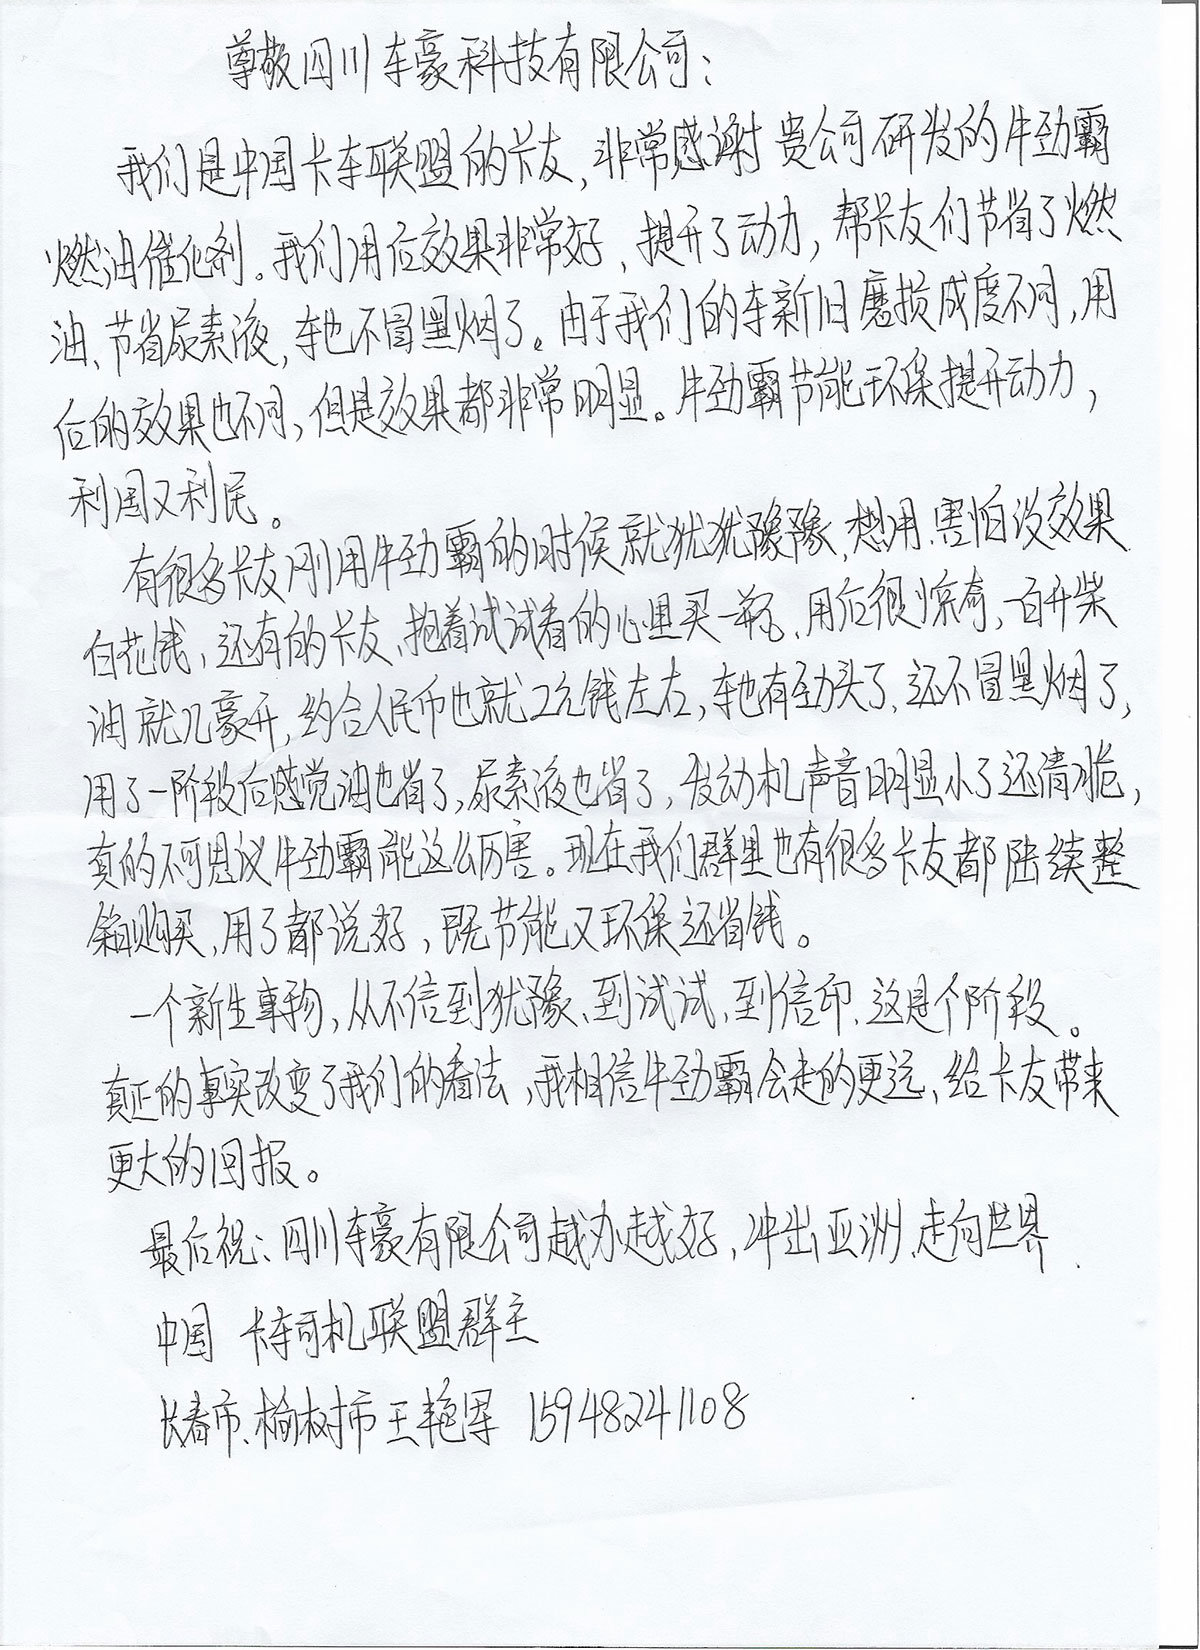 尊敬四川车豪科技有限公司：
我们是中国卡车联盟的卡友，非常感谢贵公司研发的牛劲霸
燃油催化剂。我们用后效果非常好、提升了动力，帮卡友们节省了燃
油、节省尿素液，车也不冒黑烟了。由于我们的车新旧磨损成度不同，用
后的效果也不同，但是效果都非常明显。牛劲霸节能环保提升动力，
利国又利民。
有很多卡友刚用牛劲霸的时候就犹犹豫豫、想用、害怕没效果
白花钱，还有的卡友、抱着试试看的心里买一瓶、用后很惊奇，一百升柴
油就几豪升，约合人民币也就2元钱左右，车也有劲头了、还不冒黑烟了，
用了一阶段后感觉油也省了，尿素液也省了，发动机声音明显小了还清脆，
真的不可思议牛劲霸能这么厉害。现在我们群里也有很多卡友都陆续整
箱购买，用了都说好，既节能又环保还省钱。
一个新生事物，从不信到犹豫、到试试、到信印、这是个阶段。
真正的事实改变了我们的看法、我相信牛劲霸会走的更远、给卡友带来
更大的回报。
最后祝：四川车豪有限公司越办越好，冲出亚洲、走向世界.
中国 卡车司机联盟群主
长春市、榆树市王艳军 15948241108